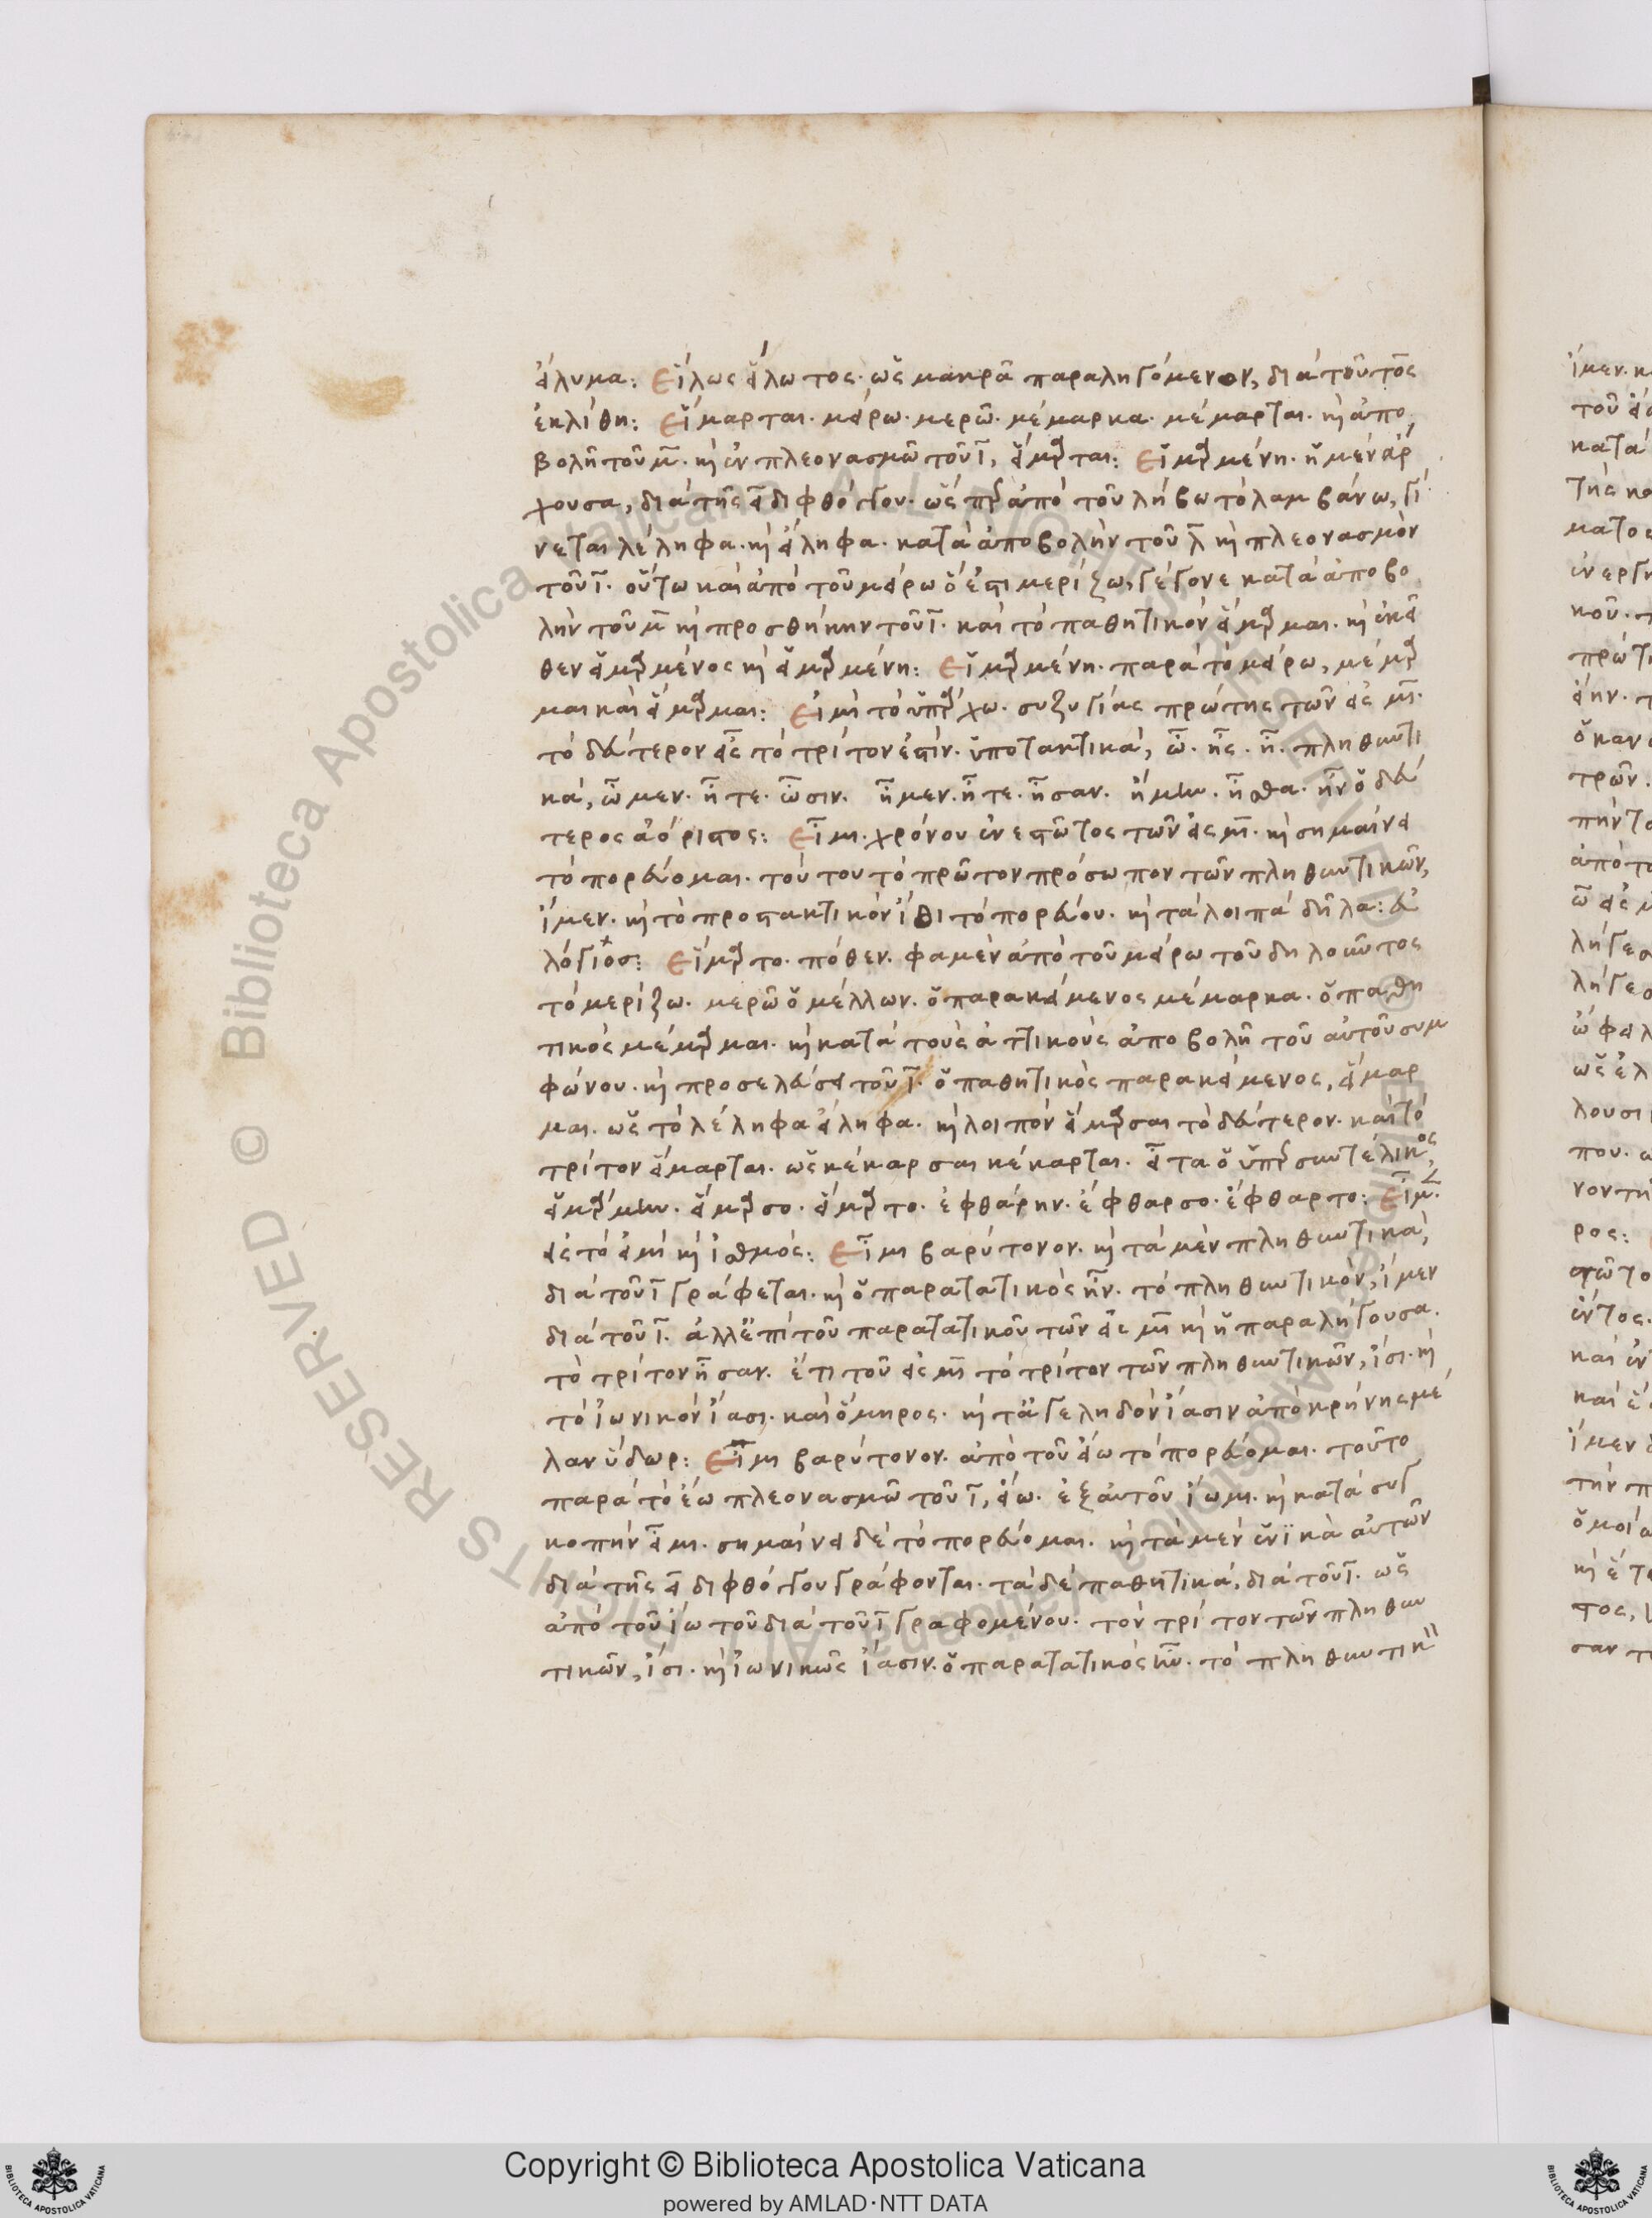 εἴλυμα: Εἵλως εἵλωτος· ὡς μακρᾶ παραληγόμενον, διὰ τοῦ τος
ἐκλίθη: Εἵμαρται· μείρω· μερῶ· μέμαρκα· μέμαρται· κỳ ἀπο
βολῆ τοῦ μ̅· κỳ ἐν πλεονασμῶ τοῦ ι̅, εἵμαρται: Εἱμαρμένη· ἡ μὲν ἄρ
χουσα, διὰ τῆς ει̅ διφθόγγου· ὥσπερ ἀπὸ τοῦ λήβω τὸ λαμβάνω, γί
νεται λέληφα· κỳ εἴληφα· κατὰ ἀποβολὴν τοῦ λ̅ κỳ πλεονασμὸν
τοῦ ι̅· οὕτω καὶ ἀπὸ τοῦ μείρω ὅ ἐστι μερίζω, γέγονε κατὰ ἀποβο
λὴν τοῦ μ̅ κỳ προσθήκην τοῦ ι̅· καὶ τὸ παθητικὸν εἵμαρμαι· κỳ ἐκεῖ
θεν εἱμαρμένος κỳ εἱμαρμένη: Εἱμαρμένη· παρὰ τὸ μείρω, μέμαρ
μαι καὶ εἵμαρμαι: Εἰμὶ τὸ ὑπάρχω· συζυγίας πρώτης τῶν εἰς μ̅ι̅·
τὸ δεύτερον εἶς τὸ τρίτον ἐστίν· ὑποτακτικά, ὦ· ἦς· ἦ· πληθυντι
κά, ὦμεν· ἦτε· ὦσιν· ἦμεν· ἦτε· ἦσαν· ἤμην· ἦσθα· ἦν ὁ δεύ
τερος ἀόριστος: Εἶμι· χρόνου ἐνεστῶτος τῶν εἰς μ̅ι̅· κỳ σημαίνει
τὸ πορεύομαι· τούτου τὸ πρῶτον πρόσωπον τῶν πληθυντικῶν,
ἴμεν· κỳ τὸ προστακτικὸν ἴθι τὸ πορεύου· κỳ τὰ λοιπὰ δῆλα: εὐ
λόγιος: Εἵμαρτο· πόθεν· φαμὲν ἀπὸ τοῦ μείρω τοῦ δηλοῦντος
τὸ μερίζω· μερῶ ὁ μέλλων· ὁ παρακείμενος μέμαρκα· ὁ παθη
τικὸς μέμαρμαι· κỳ κατὰ τοὺς ἀττικοὺς ἀποβολῆ τοῦ αὐτοῦ συμ
φώνου· κỳ προσελεύσει τοῦ ι̅· ὁ παθητικὸς παρακείμενος, εἵμαρ
μαι· ὡς τὸ λέληφα εἴληφα· κỳ λοιπὸν εἵμαρσαι τὸ δεύτερον· καὶ τὸ
τρίτον εἵμαρται· ὡς κέκαρσαι κέκαρται· εἶτα ὁ ὑπερσυντέλικος,
εἱμάρμην· εἵμαρσο· εἵμαρτο· ἐφθάρην· ἔφθαρσο· ἔφθαρτο: Εἶμι·
εἰς τὸ εἰμὶ κỳ ἰσθμός: Εἶμι βαρύτονον· κỳ τὰ μὲν πληθυντικὰ,
διὰ τοῦ ι̅ γράφεται· κỳ ὁ παρατατικὸς ἦν· τὸ πληθυντικὸν, ἴμεν
διὰ τοῦ ι̅· ἀλλ' ἐπὶ τοῦ παρατατικοῦ τῶν εἰς μ̅ι̅ κỳ ἡ παραλήγουσα·
τὸ τρίτον ἦσαν· ἔτι τοῦ εἰς μ̅ι̅ τὸ τρίτον τῶν πληθυντικῶν, ἴσι· κỳ
τὸ ἰωνικὸν ἴασι· καὶ ὅμηρος· κỳ τ' ἀγεληδὸν ἴασιν ἀπὸ κρήνης μέ
λαν ὕδωρ: Εἶμι βαρύτονον· ἀπὸ τοῦ είω τὸ πορεύομαι· τοῦτο
παρὰ τὸ ἔω πλεονασμῶ τοῦ ι̅, είω· ἐξ αὐτοῦ ἴωμι· κỳ κατὰ συγ
κοπὴν εἶμι· σημαίνει δὲ τὸ πορεύομαι· κỳ τὰ μὲν ἑνϊκὰ αὐτῶν
διὰ τῆς ει̅ διφθόγγου γράφονται· τὰ δὲ παθητικά, διὰ τοῦ ι̅· ὡς
ἀπὸ τοῦ ἴω τοῦ διὰ τοῦ ι̅ γραφομένου· τὸν τρίτον τῶν πληθυν
τικῶν, ἴσι· κỳ ἰωνικῶς ἴασιν· ὁ παρατατικὸς ἦν· τὸ πληθυντικὸν
Copyright © Biblioteca Apostolica Vaticana
powered by AMLAD·NTT DATA